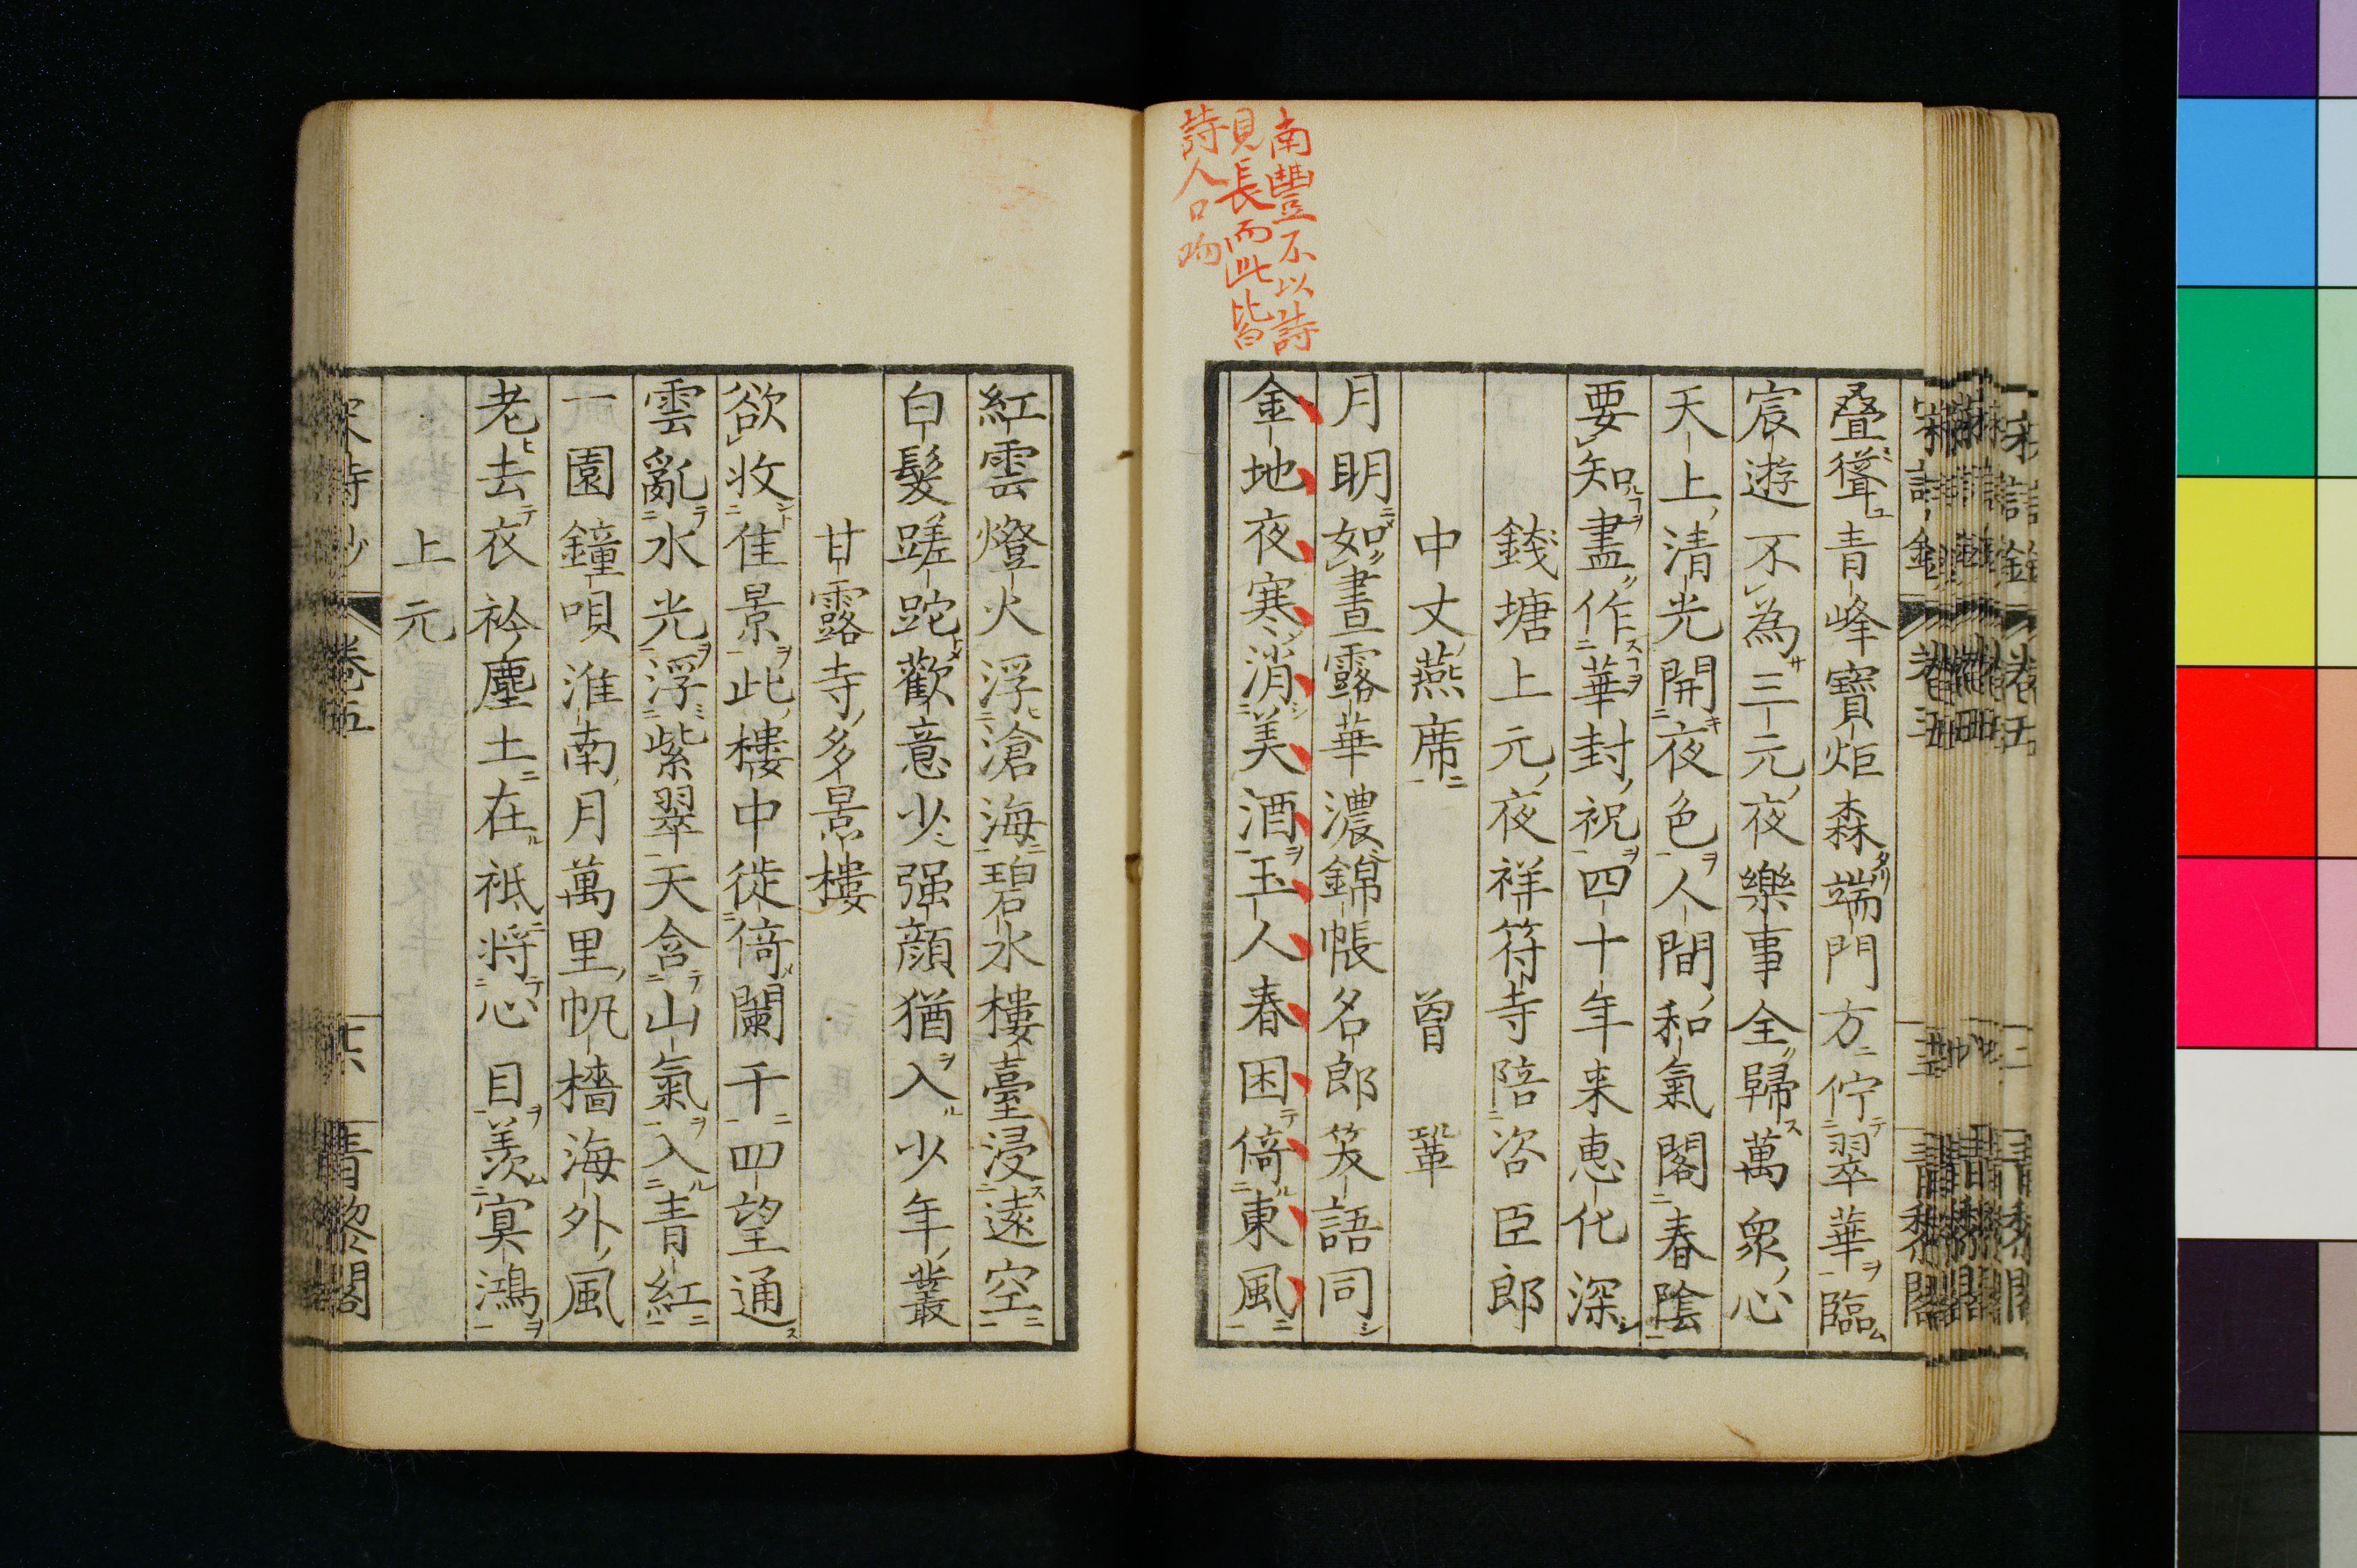 南豐不以詩
見長而此皆
詩人口吻
叠聳青峰寶炬森端門方佇翠華臨
宸遊不為三元夜樂事全歸萬衆心
天上清光開夜色人間和氣閣春陰
要知盡作華封祝四十年来恵化深
錢塘上元夜祥符寺陪咨臣郎
中丈燕席　曾鞏
月明如晝露華濃錦帳名郎笑語同
金地夜寒消美酒玉人春困倚東風
紅雲燈火浮滄海碧水樓臺浸遠空
白髮蹉跎歡意少强顔猶入少年叢
甘露寺多景樓
欲收佳景此樓中徙倚闌干四望通
雲亂水光浮紫翠天含山氣入青紅
一園鐘唄淮南月萬里帆檣海外風
老去衣衿塵土在祗將心目羨冥鴻
上元
宋詩鈔　卷五　青黎閣